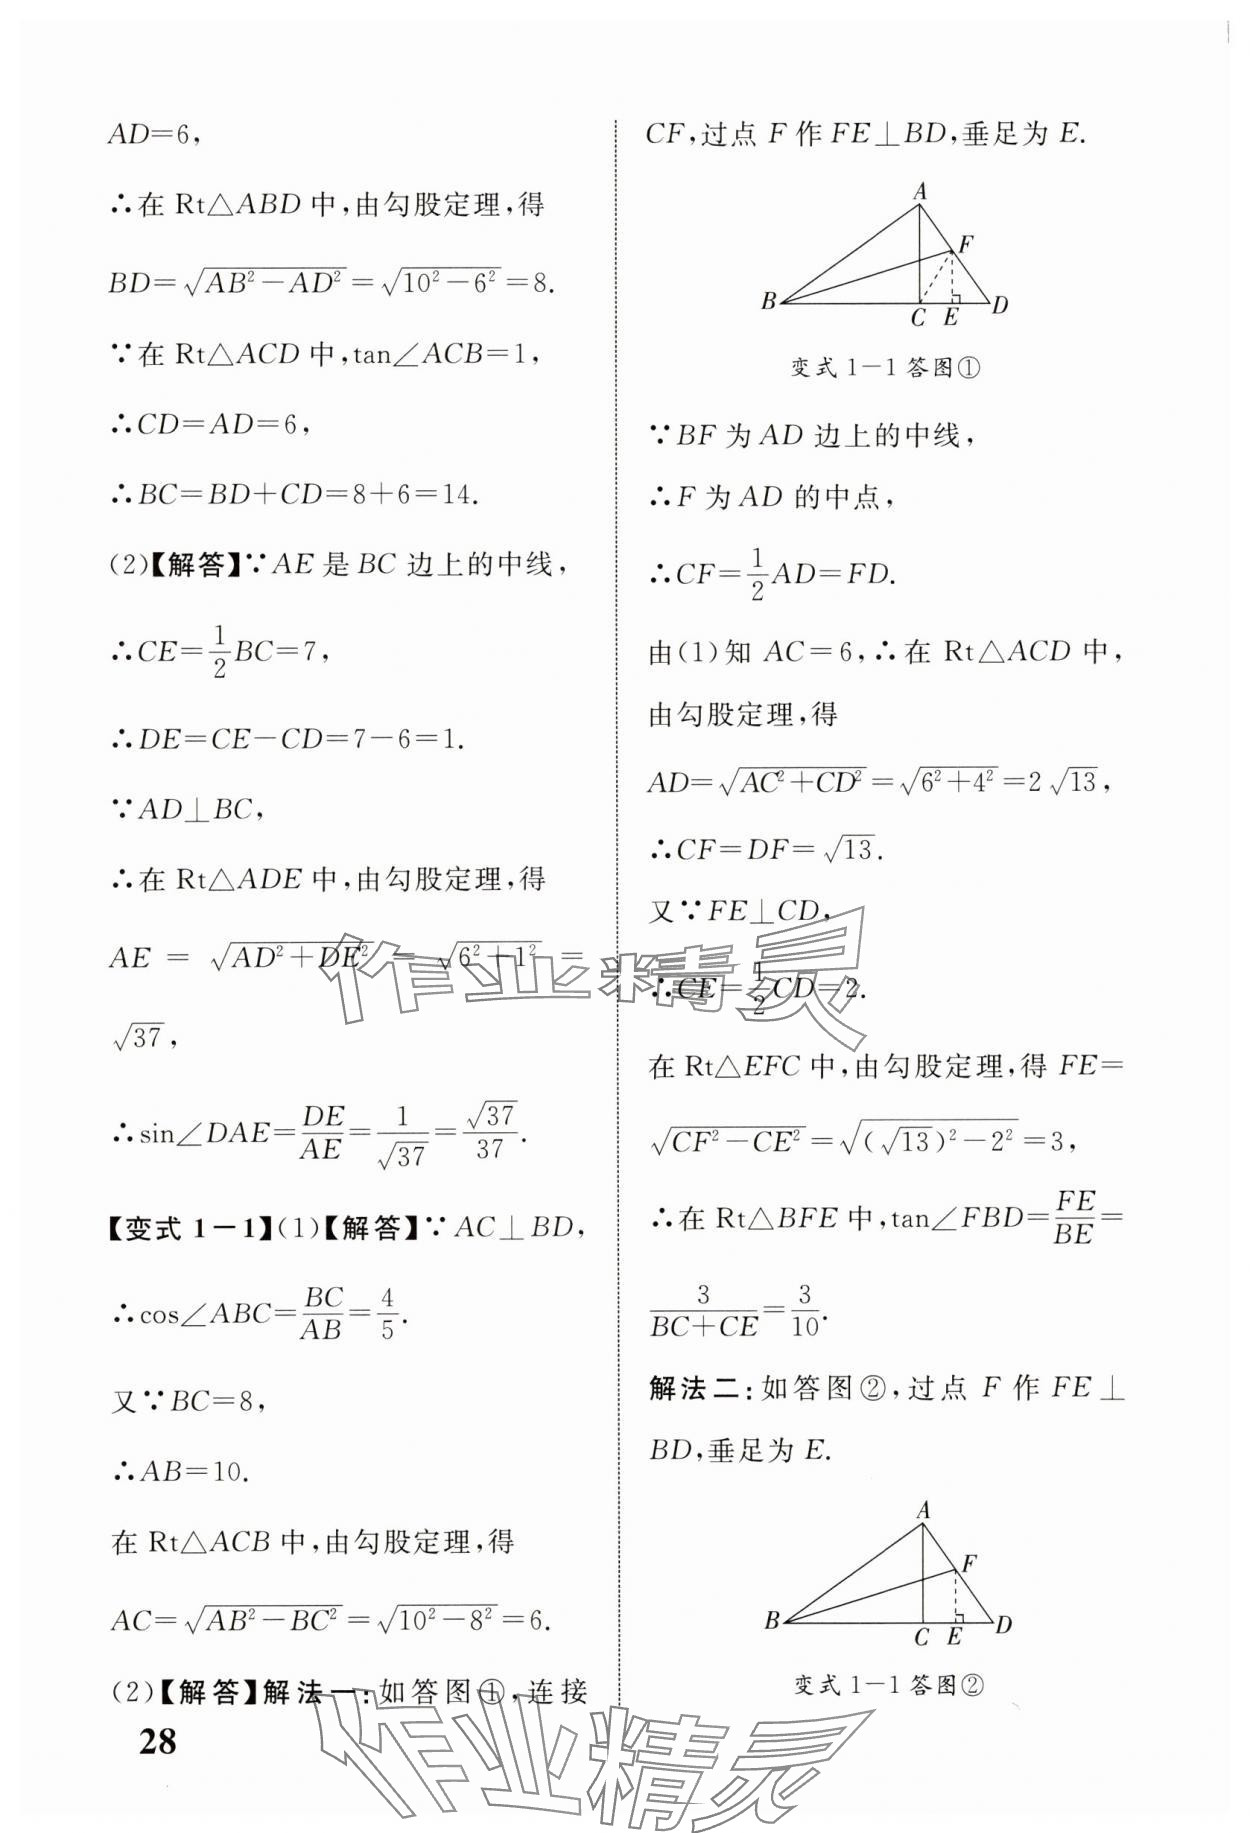 AD=6，
∴在 Rt△ABD 中，由勾股定理，得
BD=√(AB²－AD²)=√(10²－6²)=8.
∵在 Rt△ACD 中，tan∠ACB=1，
∴CD=AD=6，
∴BC=BD+CD=8+6=14.
(2)【解答】∵AE 是 BC 边上的中线，
∴CE=1/2 BC=7，
∴DE=CE－CD=7－6=1.
∵AD⊥BC，
∴在 Rt△ADE 中，由勾股定理，得
AE = √(AD²+DE²) = √(6²+1²) =
√37，
∴sin∠DAE=DE/AE=1/√37=√37/37.
【变式 1－1】(1)【解答】∵AC⊥BD，
∴cos∠ABC=BC/AB=4/5.
又∵BC=8，
∴AB=10.
在 Rt△ACB 中，由勾股定理，得
AC=√(AB²－BC²)=√(10²－8²)=6.
(2)【解答】解法一：如答图①，连接
28
CF，过点 F 作 FE⊥BD，垂足为 E.
A
F
B
C E D
变式 1－1 答图①
∵BF 为 AD 边上的中线，
∴F 为 AD 的中点，
∴CF=1/2 AD=FD.
由(1)知 AC=6，∴在 Rt△ACD 中，
由勾股定理，得
AD=√(AC²+CD²)=√(6²+4²)=2√13，
∴CF=DF=√13.
又∵FE⊥CD，
∴CE=1/2 CD=2.
在 Rt△EFC 中，由勾股定理，得 FE=
√(CF²－CE²)=√((√13)²－2²)=3，
∴在 Rt△BFE 中，tan∠FBD=FE/BE=
3/(BC+CE)=3/10.
解法二：如答图②，过点 F 作 FE⊥
BD，垂足为 E.
A
F
B
C E D
变式 1－1 答图②
作业精灵
作业精灵